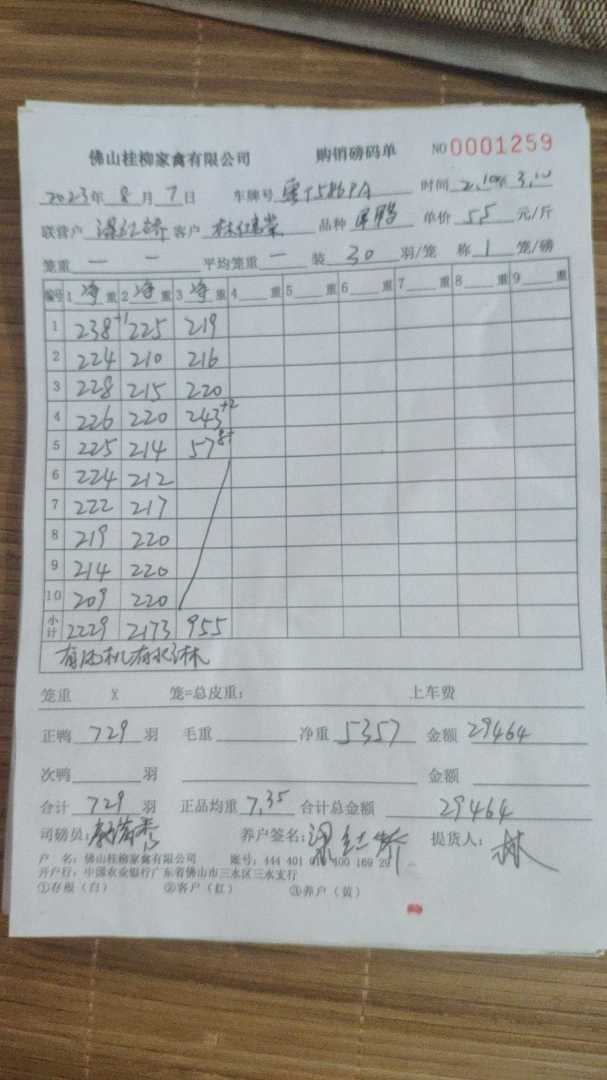 佛山桂柳家禽有限公司 购销磅码单 NO 0001259
2023年 8 月 7 日 车牌号 时间 3.10
联营户 客户 品种 单价 5.5 元/斤
笼重 一 一 平均笼重 一 装 30 羽/笼 称 1 笼/磅
编号 1 净 重 2 净 重 3 净 重 4 重 5 重 6 重 7 重 8 重 9 重
1 238+1 225 219
2 224 210 216
3 228 215 220
4 226 220 243+2
5 225 214 57
6 224 212
7 222 217
8 219 220
9 214 220
10 209 220
小计 2229 2173 955
有风机有水淋
笼重 X 笼=总皮重： 上车费
正鸭 729 羽 毛重 净重 5357 金额 29464
次鸭 羽 金额
合计 729 羽 正品均重 7.35 合计总金额 29464
司磅员： 养户签名： 提货人： 林
户 名：佛山桂柳家禽有限公司 账号：444 401 400 169 29
开户行：中国农业银行广东省佛山市三水区三水支行
①存根（白） ②客户（红） ③养户（黄）